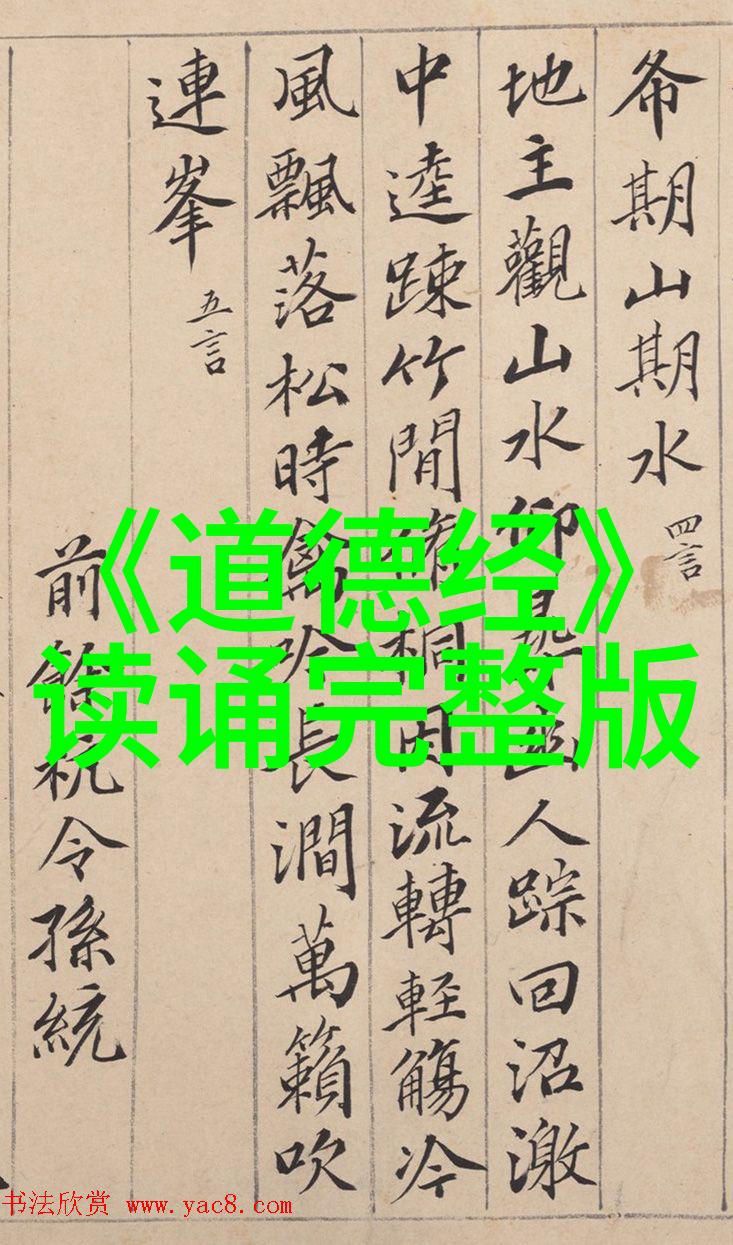 希期山期水 四言
地主觀山水仰尋幽人踪回沼激
中逵踈竹間脩桐因流轉輕觴冷
風飄落松時禽吟長澗萬籟吹
連峯 五言
前餘杭令孫統
《道德经》
读诵完整版
书法欣赏 www.yac8.com